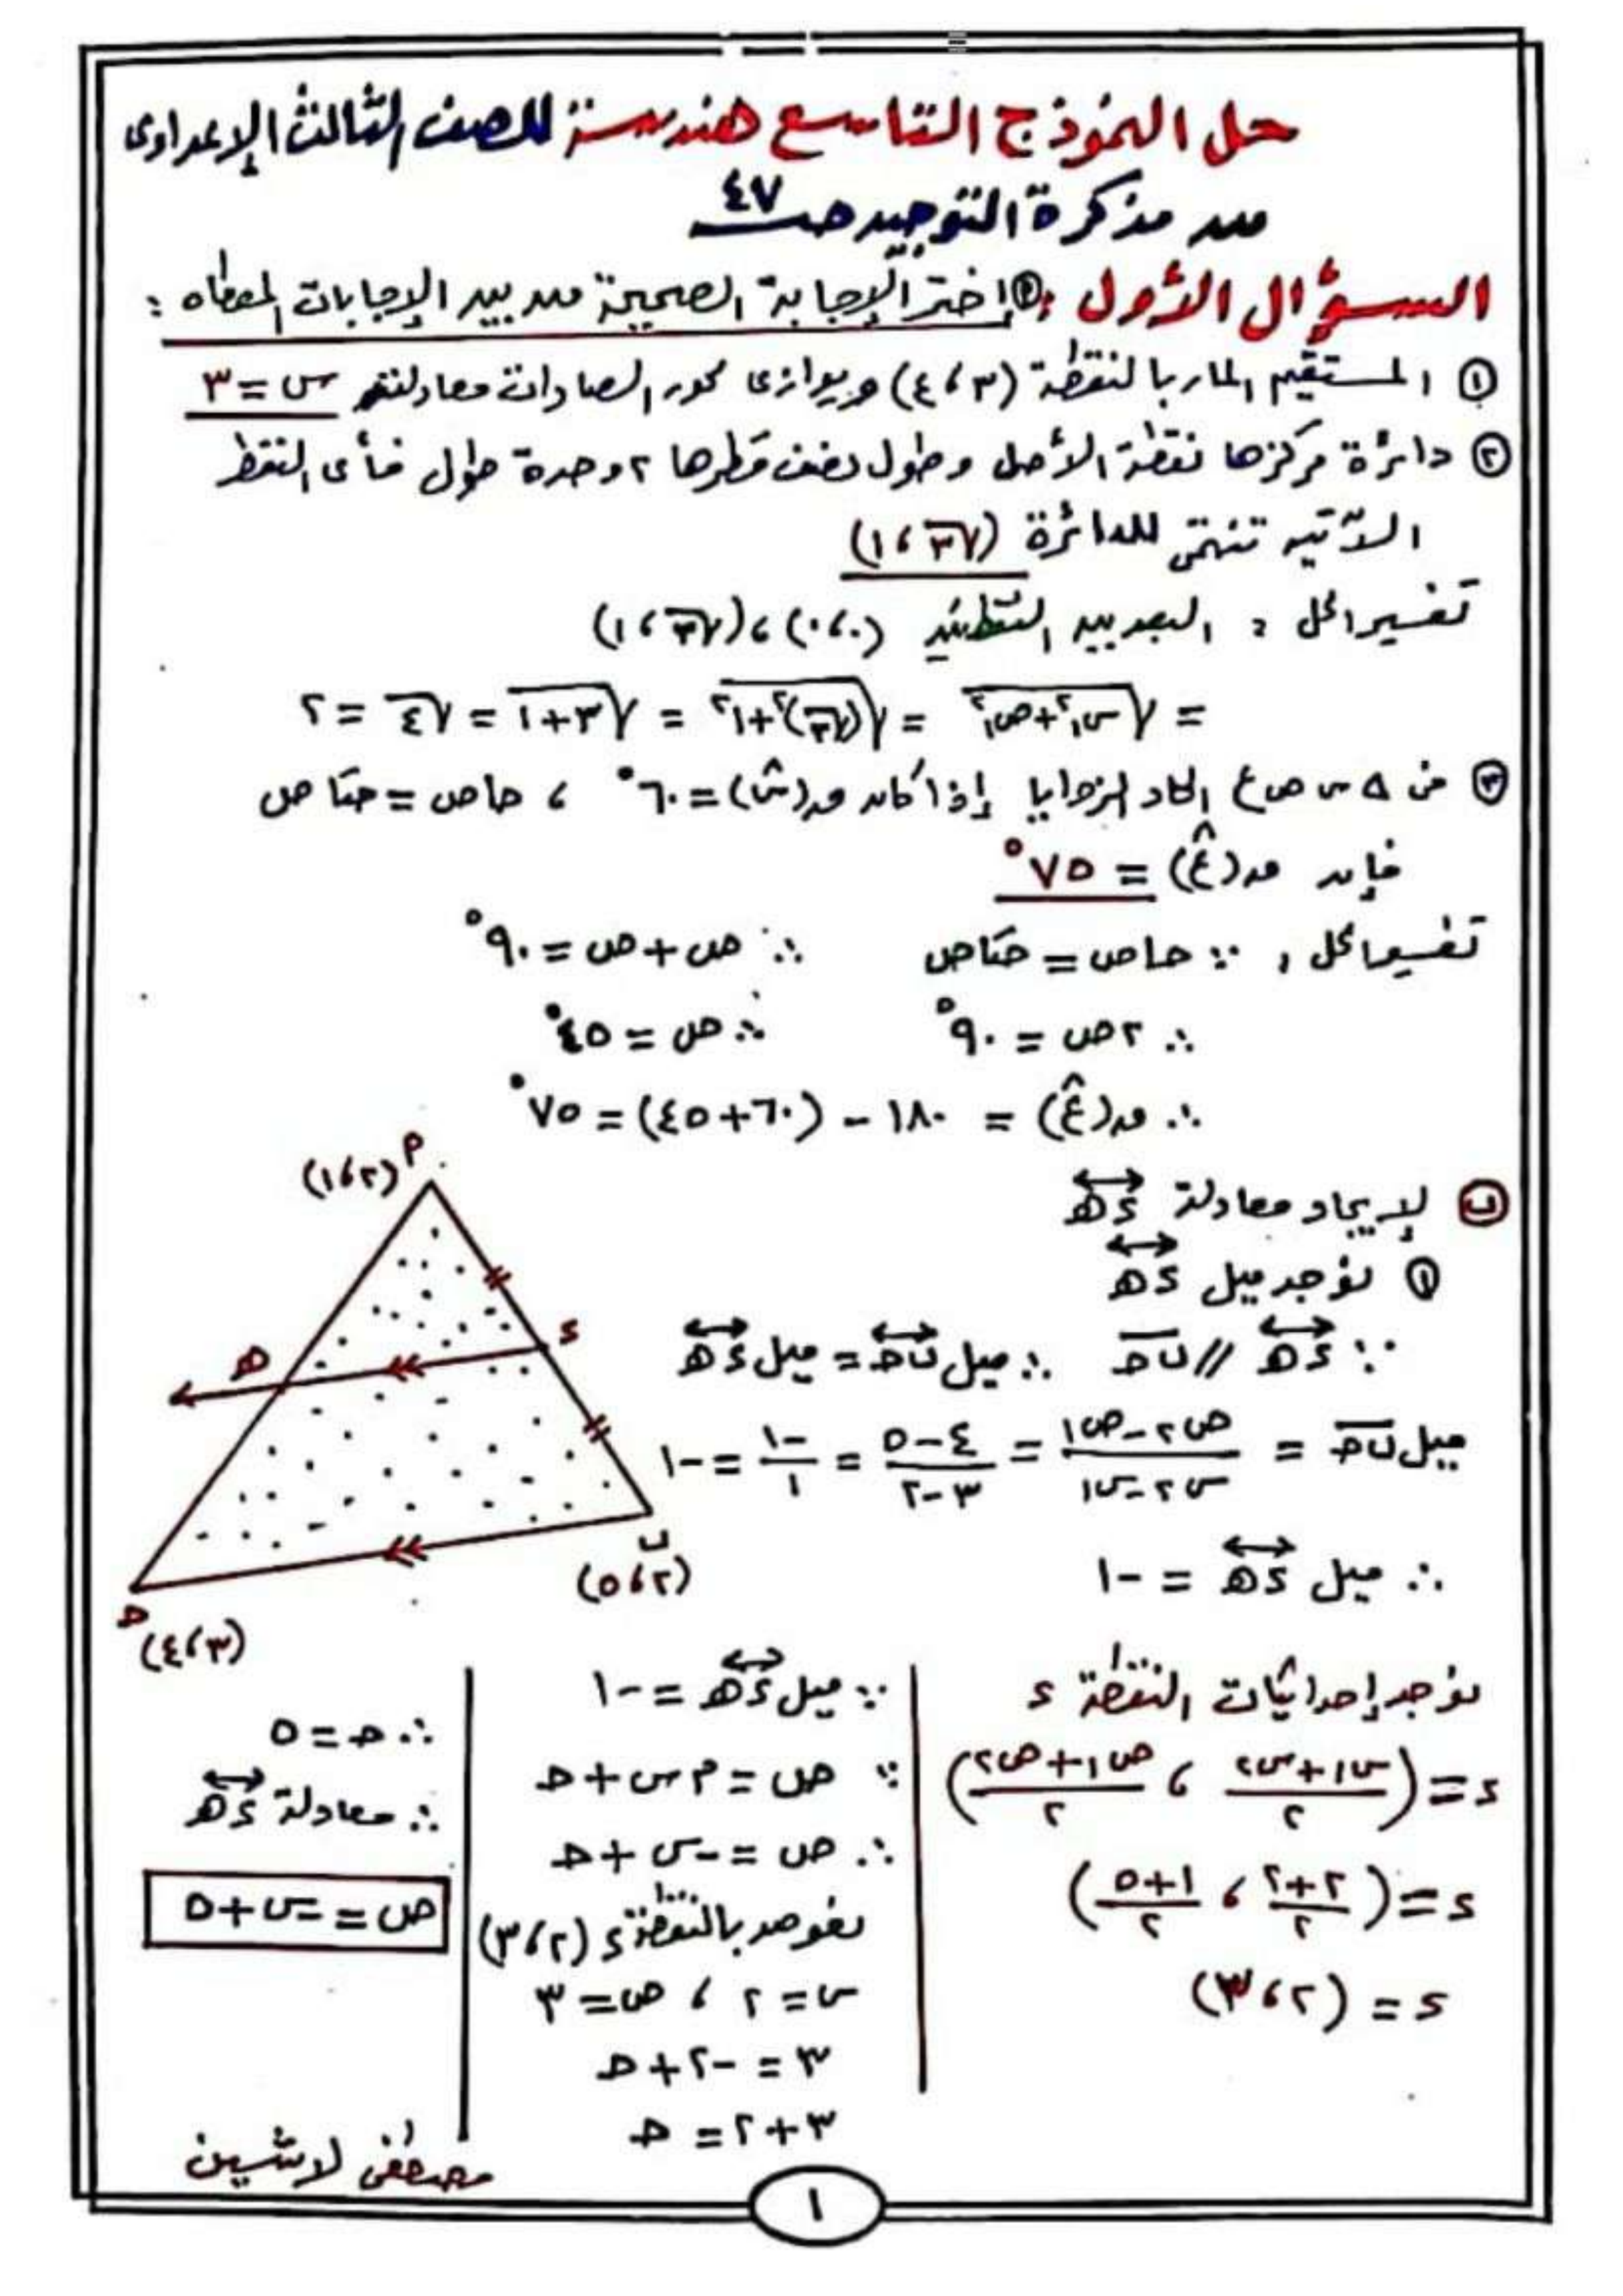 حل النموذج التاسع هندسة للصف الثالث الإعدادى
من مذكرة التوجيه صـ ٤٧
السؤال الأول : P إختر الإجابة الصحيحة من بين الإجابات المعطاه :
① المستقيم المار بالنقطة (٣ ، ٤) ويوازى محور الصادات معادلته س = ٣
② دائرة مركزها نقطة الأصل وطول نصف قطرها ٢ وحدة طول فأى النقط
الآتيه تنتمى للدائرة (√٣ ، ١)
تفسير الحل : البعد بين النقطتين (٠ ، ٠) ، (√٣ ، ١)
= √(س١² + ص١²) = √((√٣)² + ١²) = √(٣ + ١) = √٤ = ٢
③ فى Δ س ص ع الحاد الزوايا إذا كان ق(سَ) = ٦٠° ، حاص = حتاص
فإن ق(ع̂) = ٧٥°
تفسير الحل : ∵ حاص = حتاص ∴ ص + ص = ٩٠°
∴ ٢ص = ٩٠° ∴ ص = ٤٥°
∴ ق(ع̂) = ١٨٠ - (٦٠ + ٤٥) = ٧٥°
P (٢ ، ١)
ب لإيجاد معادلة ء هـ
① نوجد ميل ء هـ
ء
هـ
∵ ء هـ // ب حـ ∴ ميل ب حـ = ميل ء هـ
ميل ب حـ = (ص٢ - ص١)/(س٢ - س١) = (٤ - ٥)/(٣ - ٢) = -١/١ = -١
∴ ميل ء هـ = -١
ب (٢ ، ٥)
حـ (٣ ، ٤)
نوجد إحداثيات النقطة ء
ء = ((س١ + س٢)/٢ ، (ص١ + ص٢)/٢)
ء = ((٢ + ٢)/٢ ، (١ + ٥)/٢)
ء = (٢ ، ٣)
∵ ميل ء هـ = -١
∵ ص = م س + حـ
∴ ص = -س + حـ
نعوض بالنقطة ء (٢ ، ٣)
س = ٢ ، ص = ٣
٣ = -٢ + حـ
٣ + ٢ = حـ
∴ حـ = ٥
∴ معادلة ء هـ
ص = -س + ٥
مصطفى لاشين
١